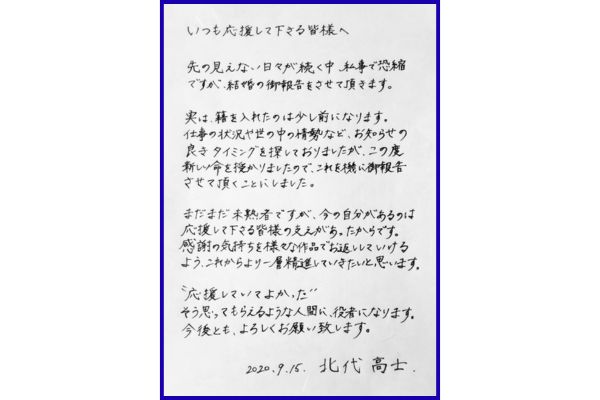 いつも応援して下さる皆様へ
先の見えない日々が続く中、私事で恐縮
ですが、結婚の御報告をさせて頂きます。
実は、籍を入れたのは少し前になります。
仕事の状況や世の中の情勢など、お知らせの
良きタイミングを探しておりましたが、この度
新しい命を授かりましたので、これを機に御報告
させて頂くことにしました。
まだまだ未熟者ですが、今の自分があるのは
応援して下さる皆様の支えがあったからです。
感謝の気持ちを様々な作品でお返ししていける
よう、これからより一層精進していきたいと思います。
"応援していてよかった"
そう思ってもらえるような人間に、役者になります。
今後とも、よろしくお願い致します。
2020.9.15. 北代 高士.